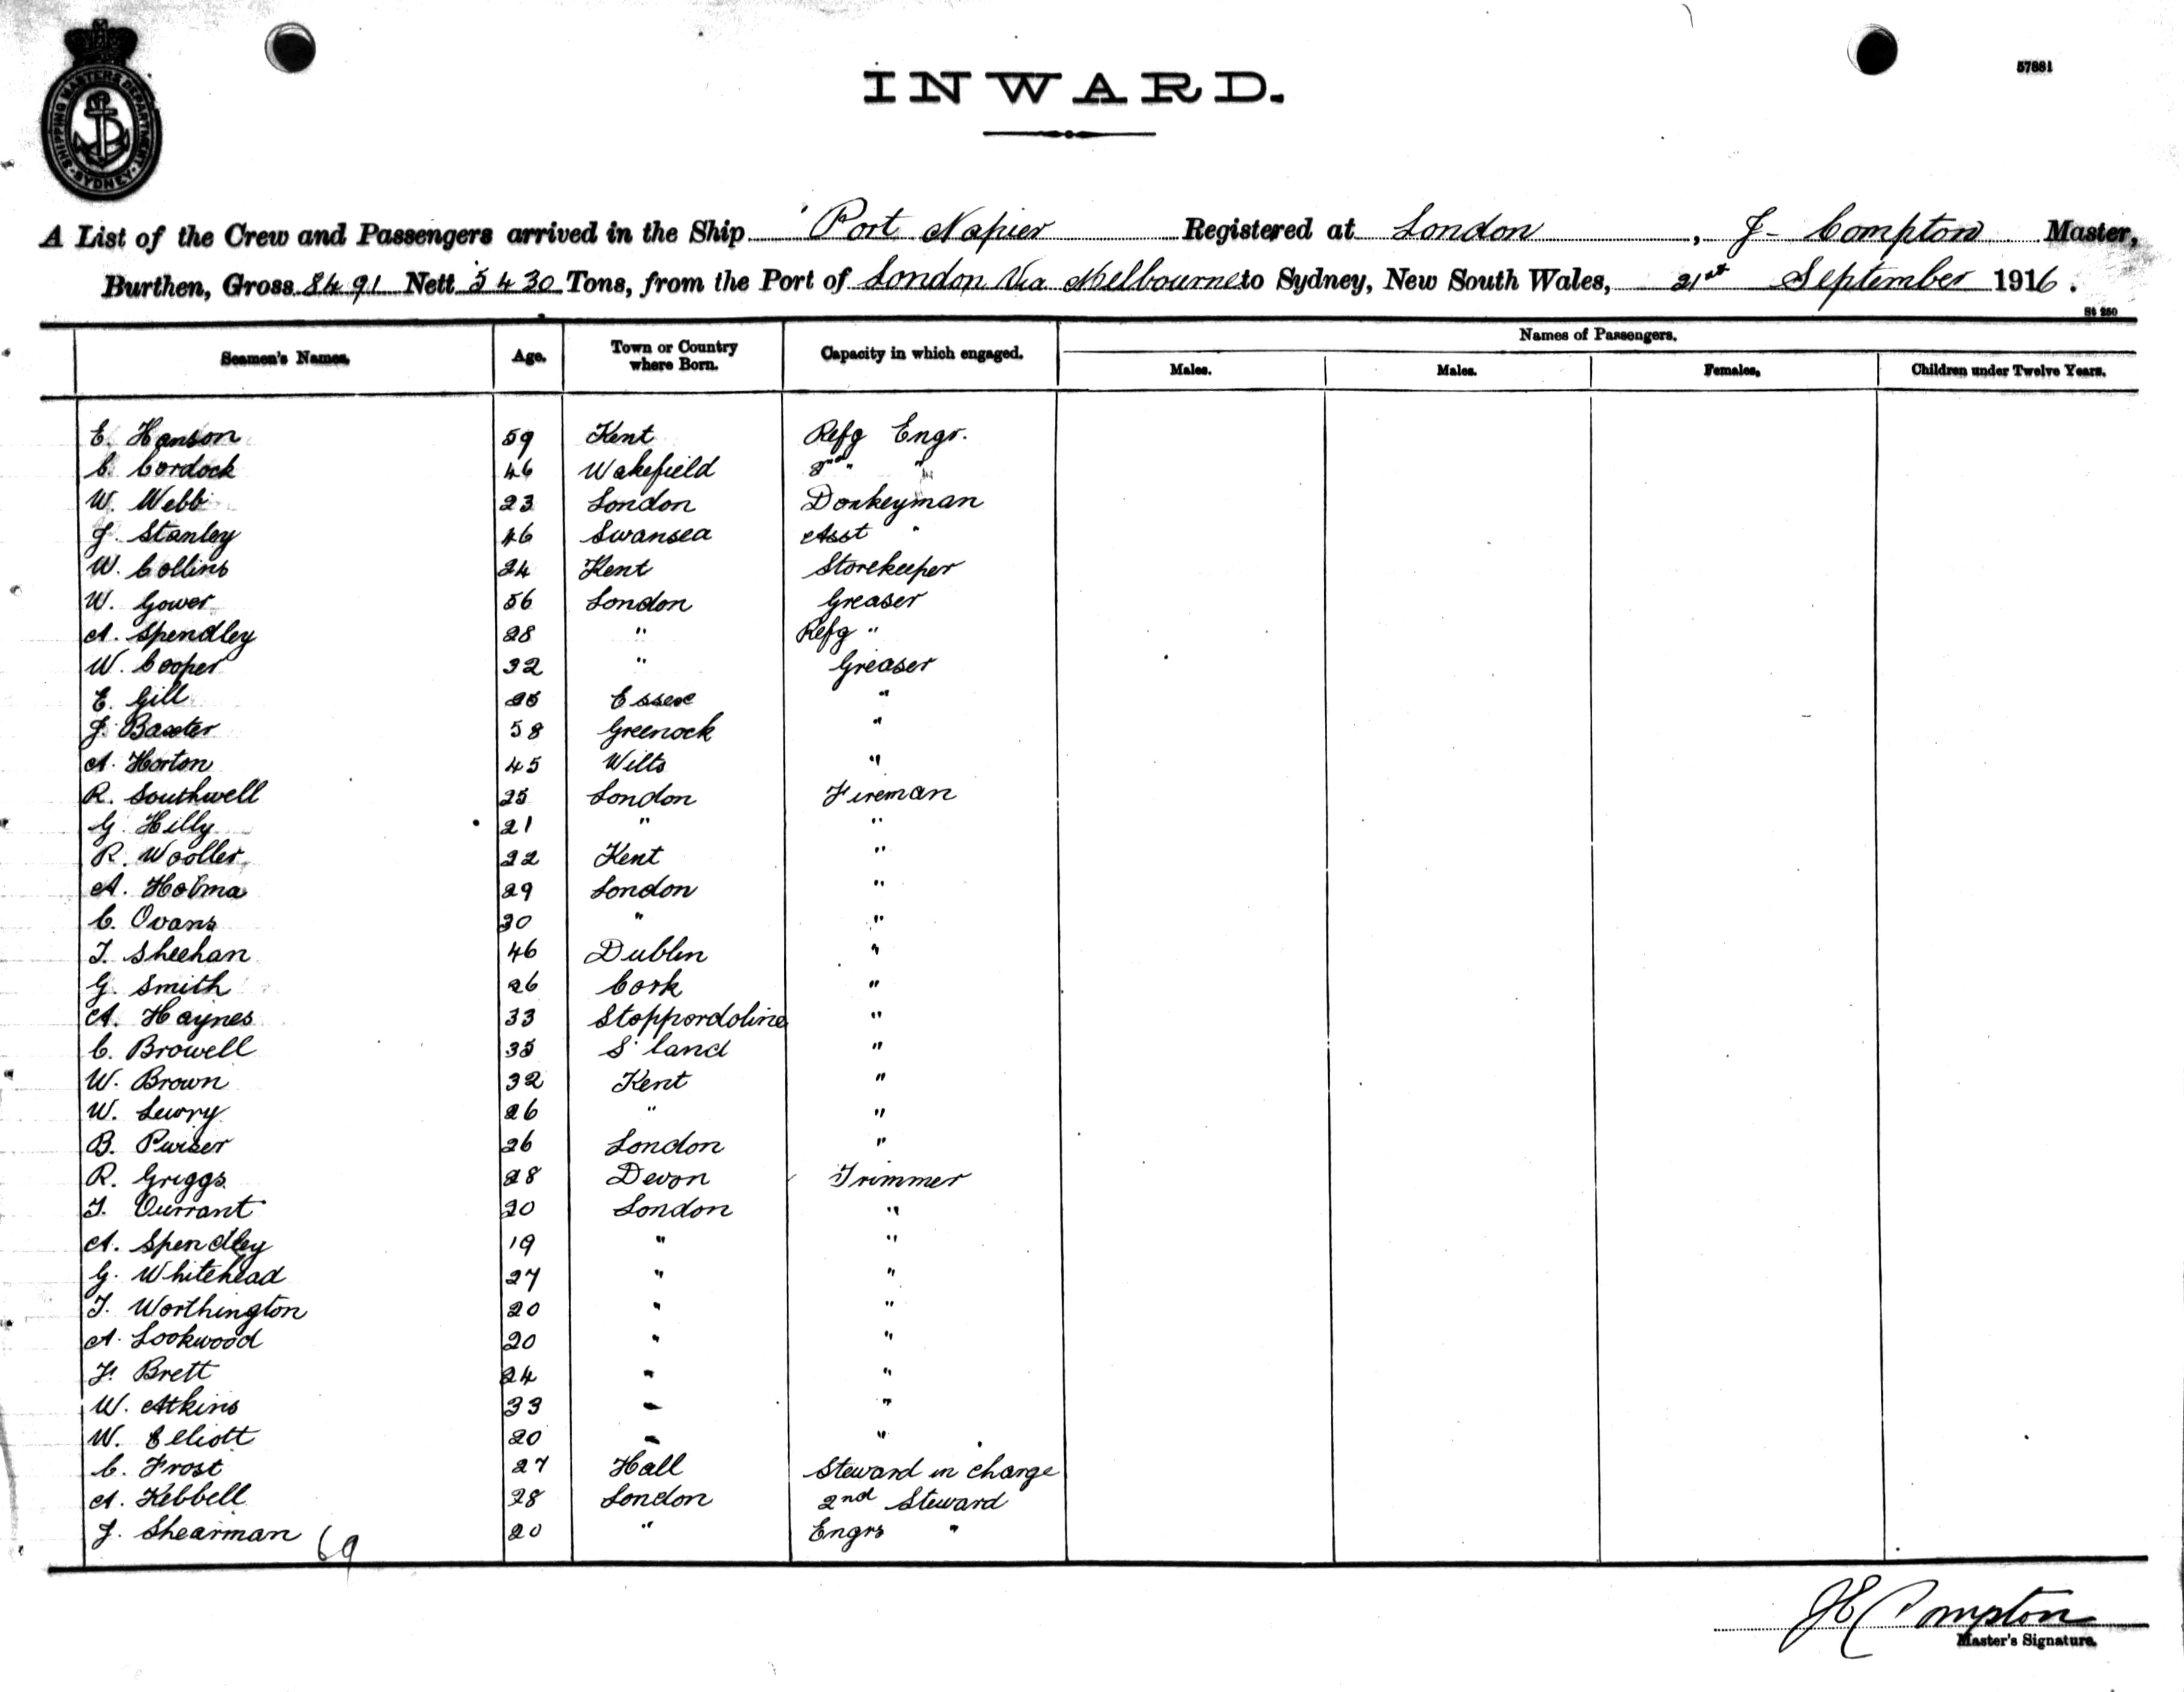 SHIPPING MASTERS DEPARTMENT SYDNEY
57881
INWARD.
A List of the Crew and Passengers arrived in the Ship Port Napier Registered at London, J. Compton Master,
Burthen, Gross 8491 Nett 5430 Tons, from the Port of London Via Melbourne to Sydney, New South Wales, 21st September 1916.
St 250
Seamen's Names. Age. Town or Country where Born. Capacity in which engaged. Names of Passengers.
Males. Males. Females. Children under Twelve Years.
E. Hanson 59 Kent Refg Engr.
C. Cordock 46 Wakefield " "
W. Webb 23 London Donkeyman
J. Stanley 46 Swansea Asst "
W. Collins 24 Kent Storekeeper
W. Gower 56 London Greaser
A. Spendley 28 " Refg "
W. Cooper 32 " Greaser
E. Gill Essex "
J. Baxter 58 Greenock "
A. Horton 45 Wilts "
R. Southwell 25 London Fireman
G. Hilly 21 " "
R. Wooller 22 Kent "
A. Holma 29 London "
C. Ovans 30 " "
T. Sheehan 46 Dublin "
G. Smith 26 Cork "
A. Haynes 33 Stoppordoline "
C. Browell 35 S'land "
W. Brown 32 Kent "
W. Lurry 26 " "
B. Purser 26 London "
R. Griggs 28 Devon Trimmer
T. Currant 20 London "
A. Spendley 19 " "
G. Whitehead 27 " "
T. Worthington 20 " "
A. Lookwood 20 " "
F. Brett 24 " "
W. Atkins 33 " "
W. Elliott 20 " "
C. Frost 27 Hall Steward in charge
A. Kebbell 28 London 2nd Steward
J. Shearman 20 " Engrs "
69
J Compton
Master's Signature.